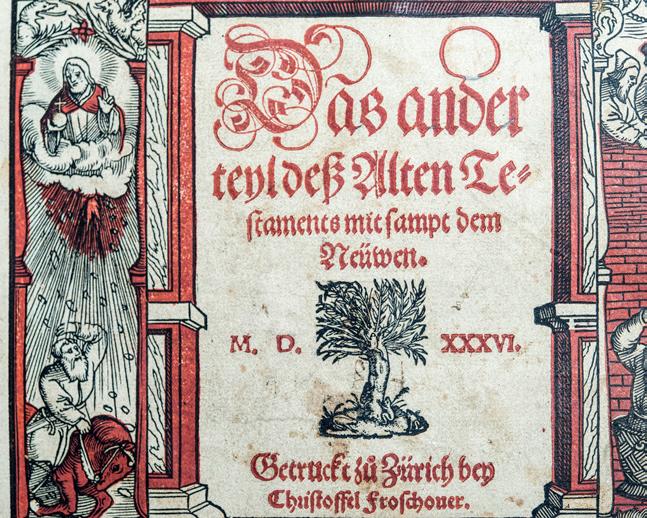 Das ander
teyl deß Alten Te⸗
ſtaments mit ſampt dem
Neüwen.
M. D. XXXVI.
Getruckt zů Zürich bey
Chriſtoffel Froſchouer.